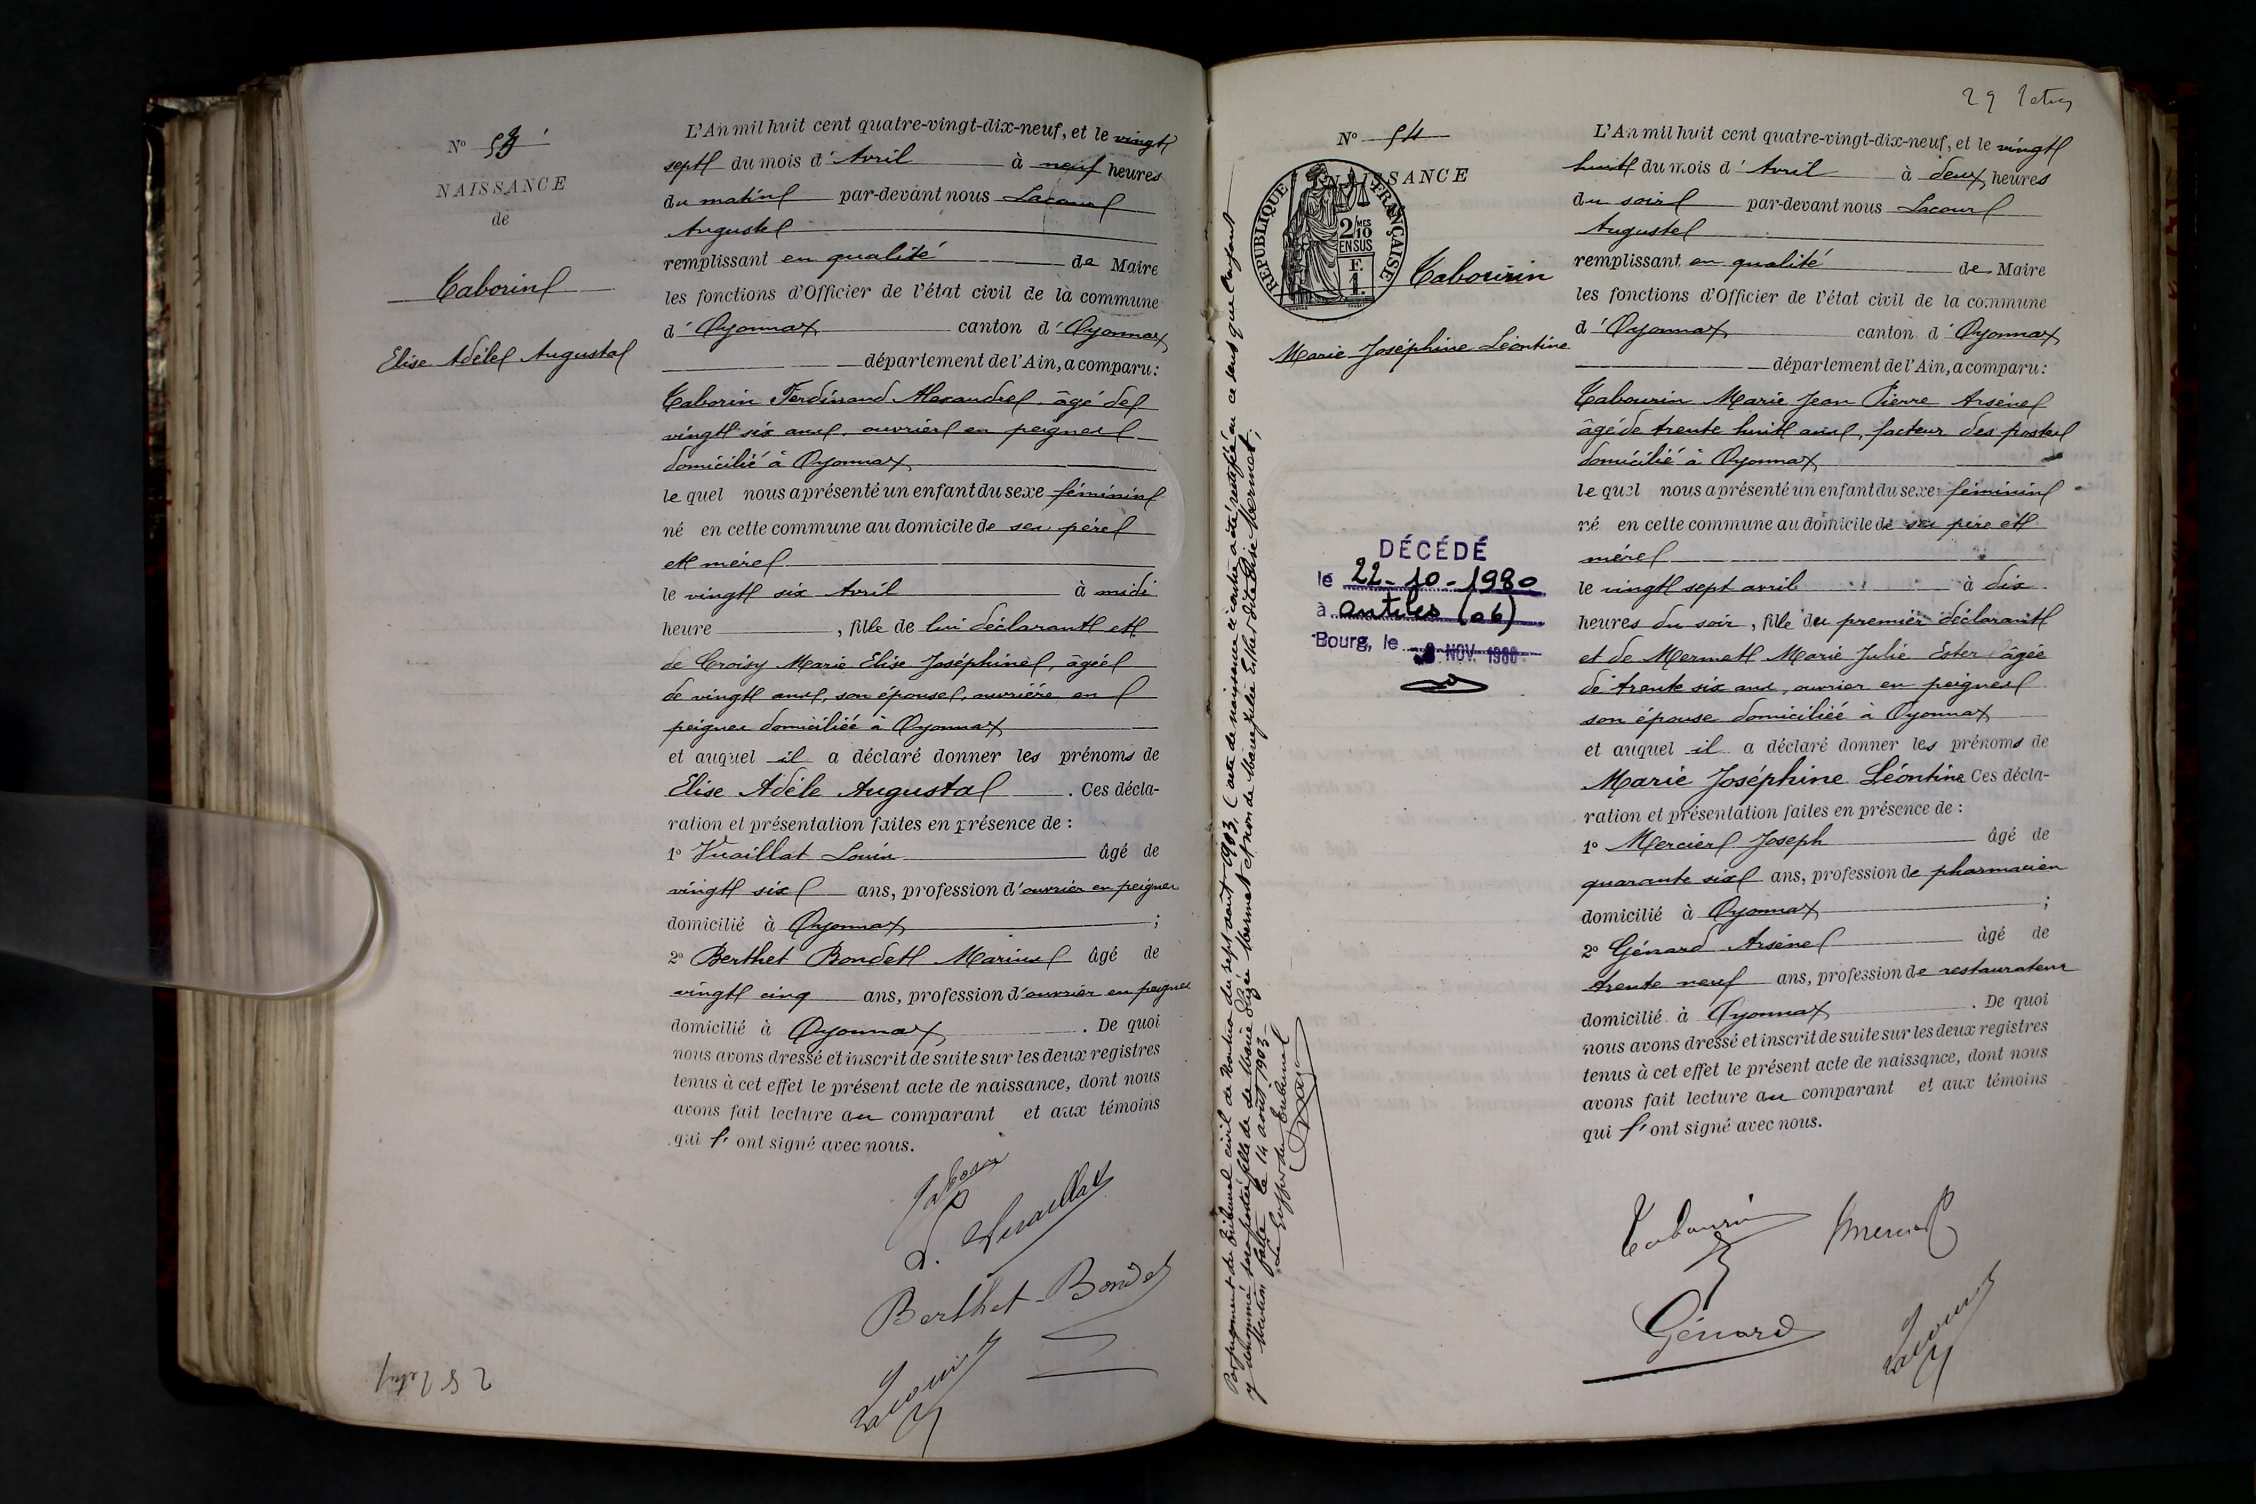 N° 53
NAISSANCE
de
Taborin
Elise Adèle Augusta
L'An mil huit cent quatre-vingt-dix-neuf, et le vingt
sept du mois d' Avril à neuf heures
du matin par-devant nous Lacour
Auguste
remplissant en qualité de Maire
les fonctions d'Officier de l'état civil de la commune
d' Oyonnax canton d' Oyonnax
département de l'Ain, a comparu :
Taborin Ferdinand Alexandre âgé de
vingt six ans, ouvrier en peignes
domicilié à Oyonnax
le quel nous a présenté un enfant du sexe féminin
né en cette commune au domicile de ses père
et mère
le vingt six Avril à midi
heure , fille de lui déclarant et
de Croisy Marie Elise Joséphine, âgée
de vingt ans, son épouse, ouvrière en
peignes domiciliée à Oyonnax
et auquel il a déclaré donner les prénoms de
Elise Adèle Augusta . Ces décla-
ration et présentation faites en présence de :
1° Vuaillat Louis âgé de
vingt six ans, profession d'ouvrier en peignes
domicilié à Oyonnax ;
2° Berthet Bondet Marius âgé de
vingt cinq ans, profession d'ouvrier en peignes
domicilié à Oyonnax . De quoi
nous avons dressé et inscrit de suite sur les deux registres
tenus à cet effet le présent acte de naissance, dont nous
avons fait lecture au comparant et aux témoins
qui l' ont signé avec nous.
Taborin
L. Vuaillat
Berthet-Bondet
Lacour
29
N° 54
NAISSANCE
RÉPUBLIQUE FRANÇAISE
2/10 MES
EN SUS
F.
1.
Tabourin
Marie Joséphine Léontine
DÉCÉDÉ
le 22-10-1980
à antibes (06)
Bourg, le NOV. 1980
Par jugement du Tribunal civil de Nantua du sept août 1903, l'acte de naissance ci-contre a été rectifié en ce sens que l'enfant
y dénommé sera portée fille de de Marie Mermet et non de Marie Julie Esther dite Elise Mermet,
Mention faite le 14 août 1903.
Le Greffier du Tribunal
L'An mil huit cent quatre-vingt-dix-neuf, et le vingt
huit du mois d' Avril à deux heures
du soir par-devant nous Lacour
Auguste
remplissant en qualité de Maire
les fonctions d'Officier de l'état civil de la commune
d' Oyonnax canton d' Oyonnax
département de l'Ain, a comparu :
Tabourin Marie Jean Pierre Arsène
âgé de trente huit ans, facteur des postes
domicilié à Oyonnax
le quel nous a présenté un enfant du sexe féminin
né en cette commune au domicile de ses père et
mère
le vingt sept avril à dix
heures du soir, fille du premier déclarant
et de Mermet Marie Julie Ester âgée
de trente six ans, ouvrier en peignes
son épouse domiciliée à Oyonnax
et auquel il a déclaré donner les prénoms de
Marie Joséphine Léontine Ces décla-
ration et présentation faites en présence de :
1° Mercier Joseph âgé de
quarante six ans, profession de pharmacien
domicilié à Oyonnax ;
2° Génard Arsène âgé de
trente neuf ans, profession de restaurateur
domicilié à Oyonnax . De quoi
nous avons dressé et inscrit de suite sur les deux registres
tenus à cet effet le présent acte de naissance, dont nous
avons fait lecture au comparant et aux témoins
qui l' ont signé avec nous.
Tabourin
Mercier
Génard
Lacour